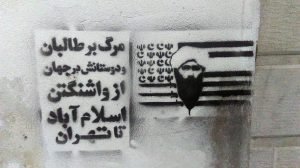 مرگ بر طالبان
و دوستانش در جهان
از واشنگتن
اسلام آباد
تا تهران